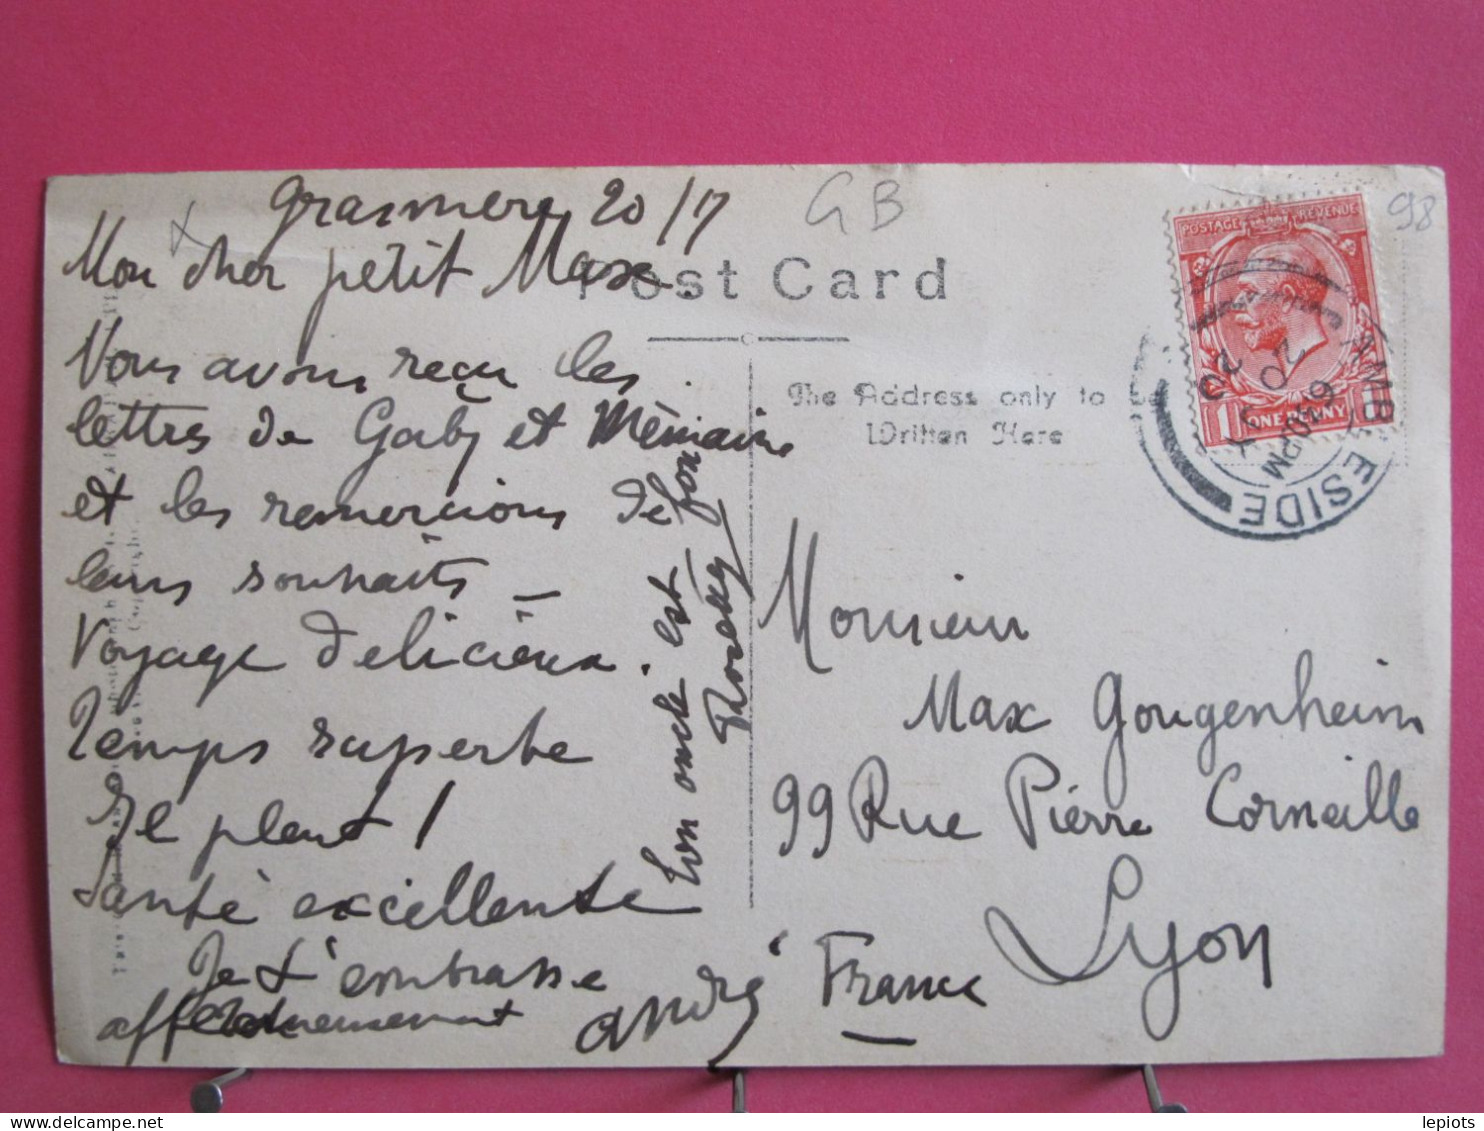 Grasmere 20/7
Mon cher petit Max
Nous avons reçu les
lettres de Gaby et Mémaine
et les remercions de
leurs souhaits _
Voyage délicieux.
Temps superbe
Il pleut !
Santé excellente
Je t'embrasse
affectueusement
André
Ton oncle est
GB
98
Post Card
The Address only to be
Written Here
POSTAGE REVENUE
1 ONE PENNY 1
AMBLESIDE
6 30 PM
20 JY
20
Monsieur
Max Gougenheim
99 Rue Pierre Corneille
Lyon
France
lepiots